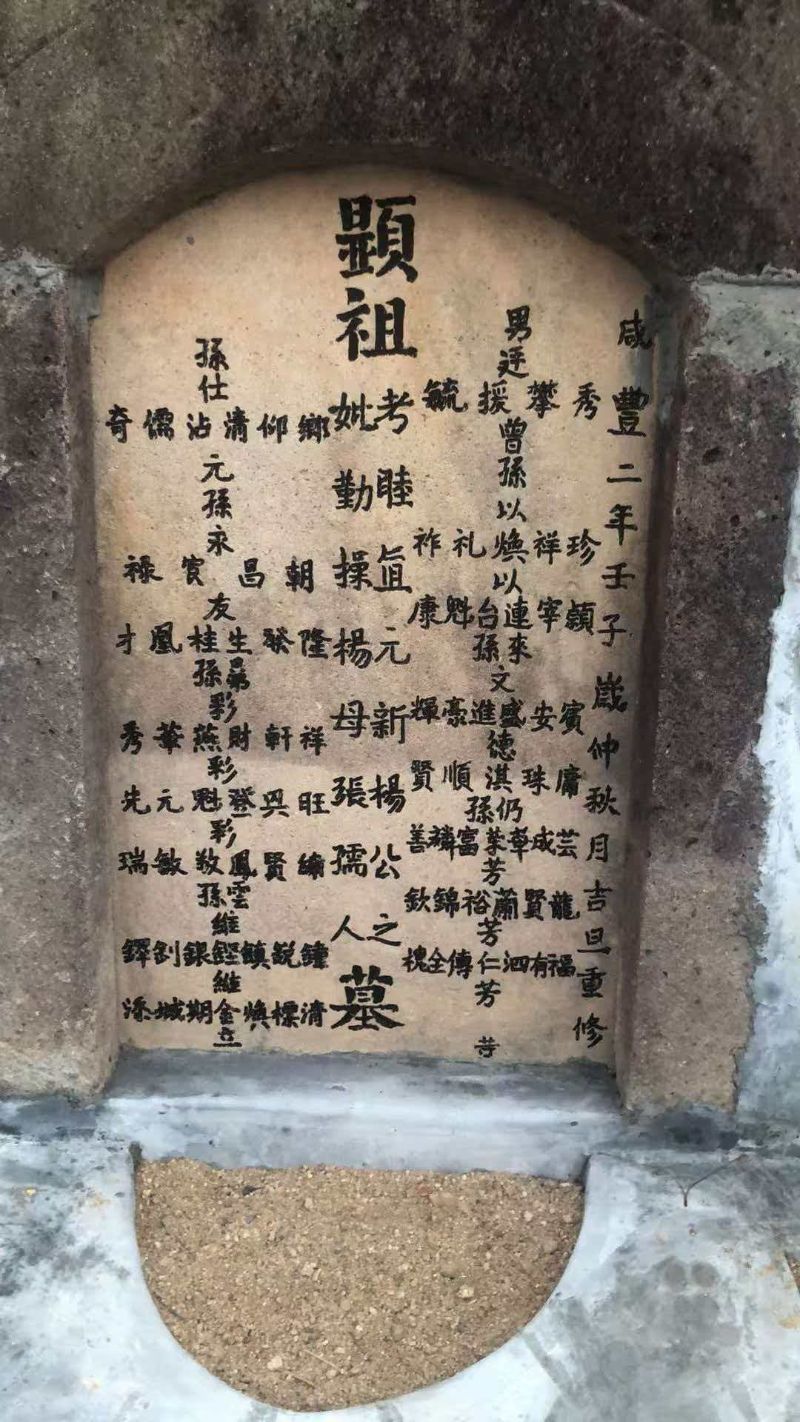 咸豐二年壬子歲仲秋月吉旦重修
男廷
秀攀援毓
曾孫以
珍祥煥礼祚
以
穎宰連台魁康
來孫文
賓安盛進豪輝
德
庸珠淇順賢
仍孫芳
芸成章業富麟善
芳
龍賢蘭裕錦欽
芳
福有泗仁傳全槐
芳
等
顯祖
考睦直元新楊公
妣勤操楊母張孺人
之墓
孫仕
鄉仰清沾儒奇
元孫永
朝昌賓祿
友
隆發生桂鳳才
晜孫彩
祥軒財燕華秀
彩
旺興登魁元先
彩
賢鳳敬敏瑞
雲孫維
鐘銳鎮鏗銀釗鐸
維
清標煥金期城添
立